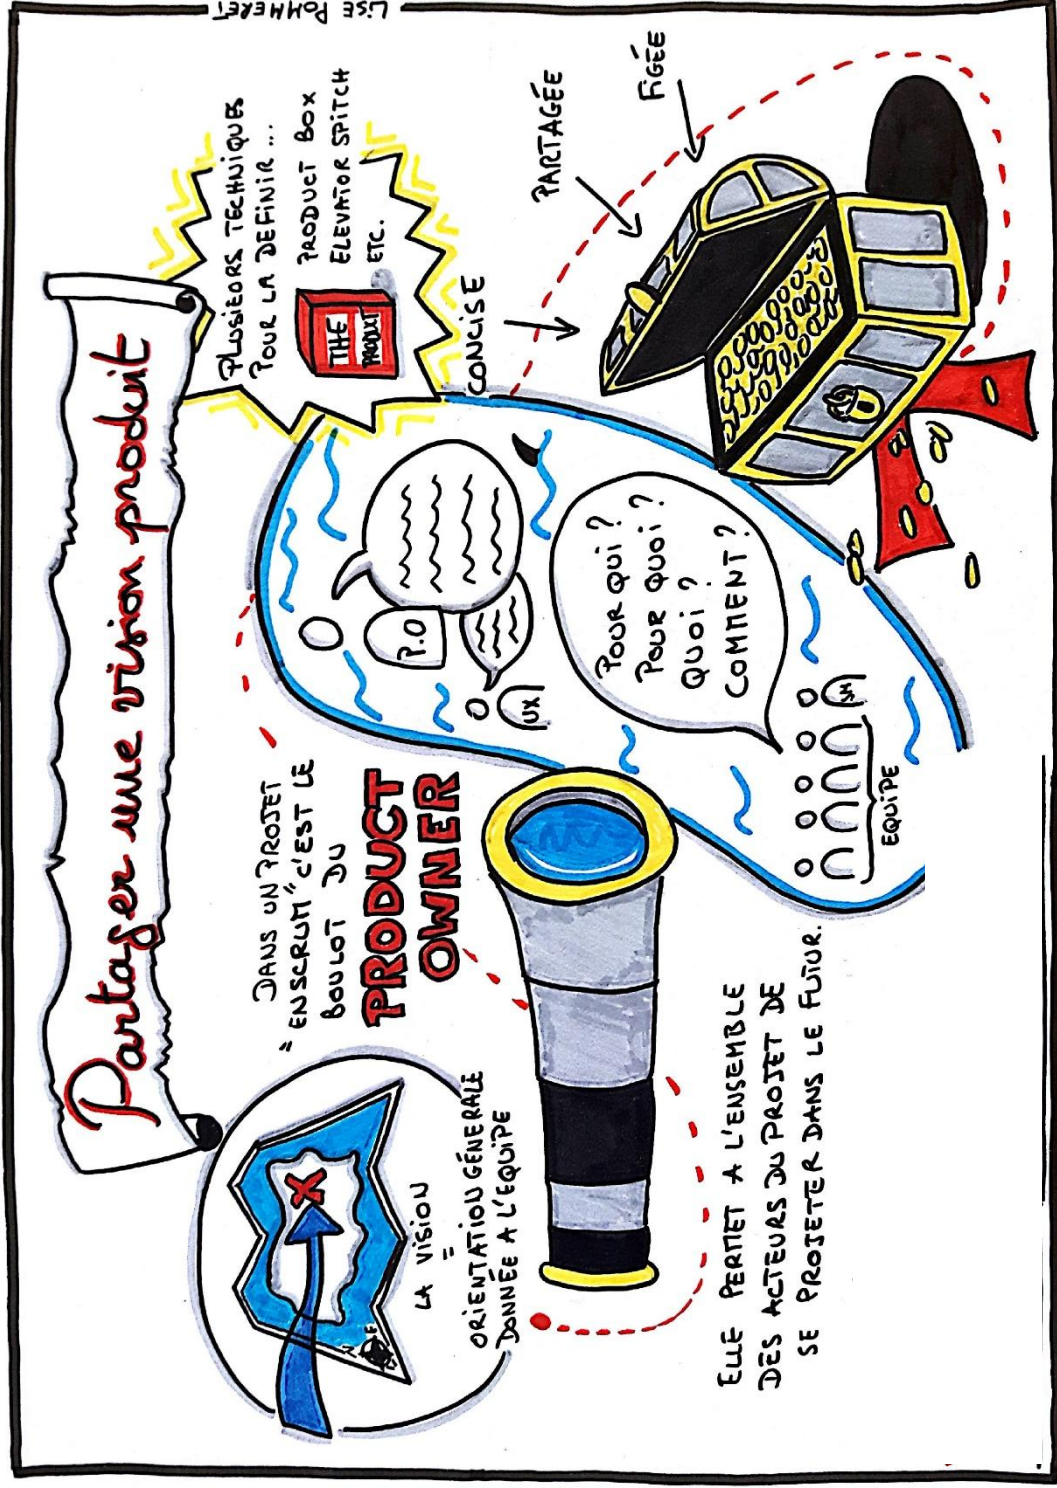 Partager une vision produit
LA VISION
=
ORIENTATION GÉNERALE
DONNÉE A L'EQUIPE
DANS UN PROJET
"ENSCRUM" C'EST LE
BOULOT DU
PRODUCT
OWNER
PLUSIEURS TECHNIQUES
POUR LA DEFINIR ...
PRODUCT BOX
ELEVATOR SPITCH
ETC.
THE
PRODUCT
P.O
UX
POUR QUI ?
POUR QUOI ?
QUOI ?
COMMENT ?
SM
EQUIPE
CONCISE
PARTAGÉE
FIGÉE
ELLE PERMET A L'ENSEMBLE
DES ACTEURS DU PROJET DE
SE PROJETER DANS LE FUTUR.
N
E
S
LISE POMMERET